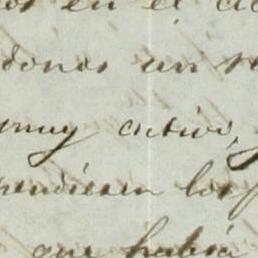 en el
donos un
muy activo,
pendiesen los
que habia